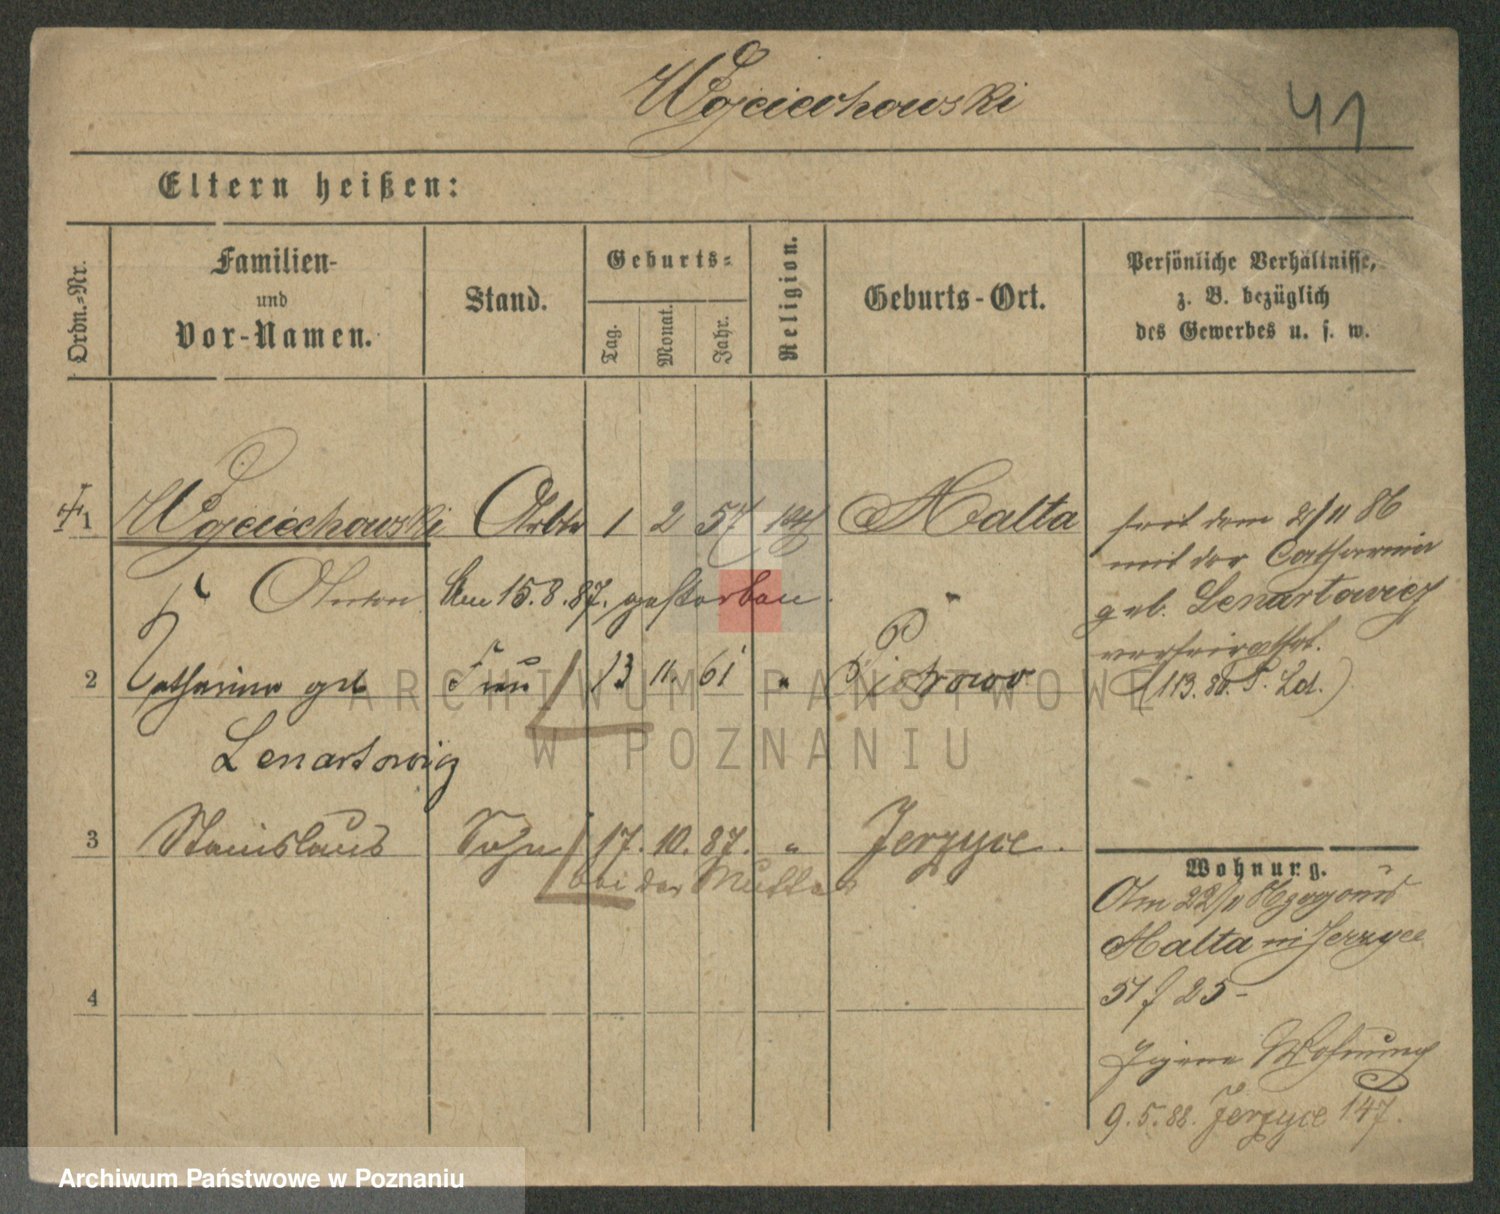 Wojciechowski
41
Eltern heißen:
Ordn.-Nr.
Familien-
und
Vor-Namen.
Stand.
Geburts-
Tag.
Monat.
Jahr.
Religion.
Geburts-Ort.
Persönliche Verhältnisse,
z. B. bezüglich
des Gewerbes u. s. w.
1 Wojciechowski Arbtr 1 2 57 kath Malta
Anton Am 15.8.87. gestorben.
seit dem 2/11 86
mit der Catharina
geb. Lenartowicz
verheirathet.
(113.86 P. Ld.)
2 Catharina geb Frau 13 11. 61 " Piotrowo
Lenartowicz
3 Stanislaus Sohn 17. 10. 87. " Jerzyce.
bei der Mutter
4
Wohnung.
Am 22/11
Malta in Jerzyce
51 f 25-
Wohnung
9.5.88. Jerzyce 147.
ARCHIWUM PAŃSTWOWE
W POZNANIU
Archiwum Państwowe w Poznaniu